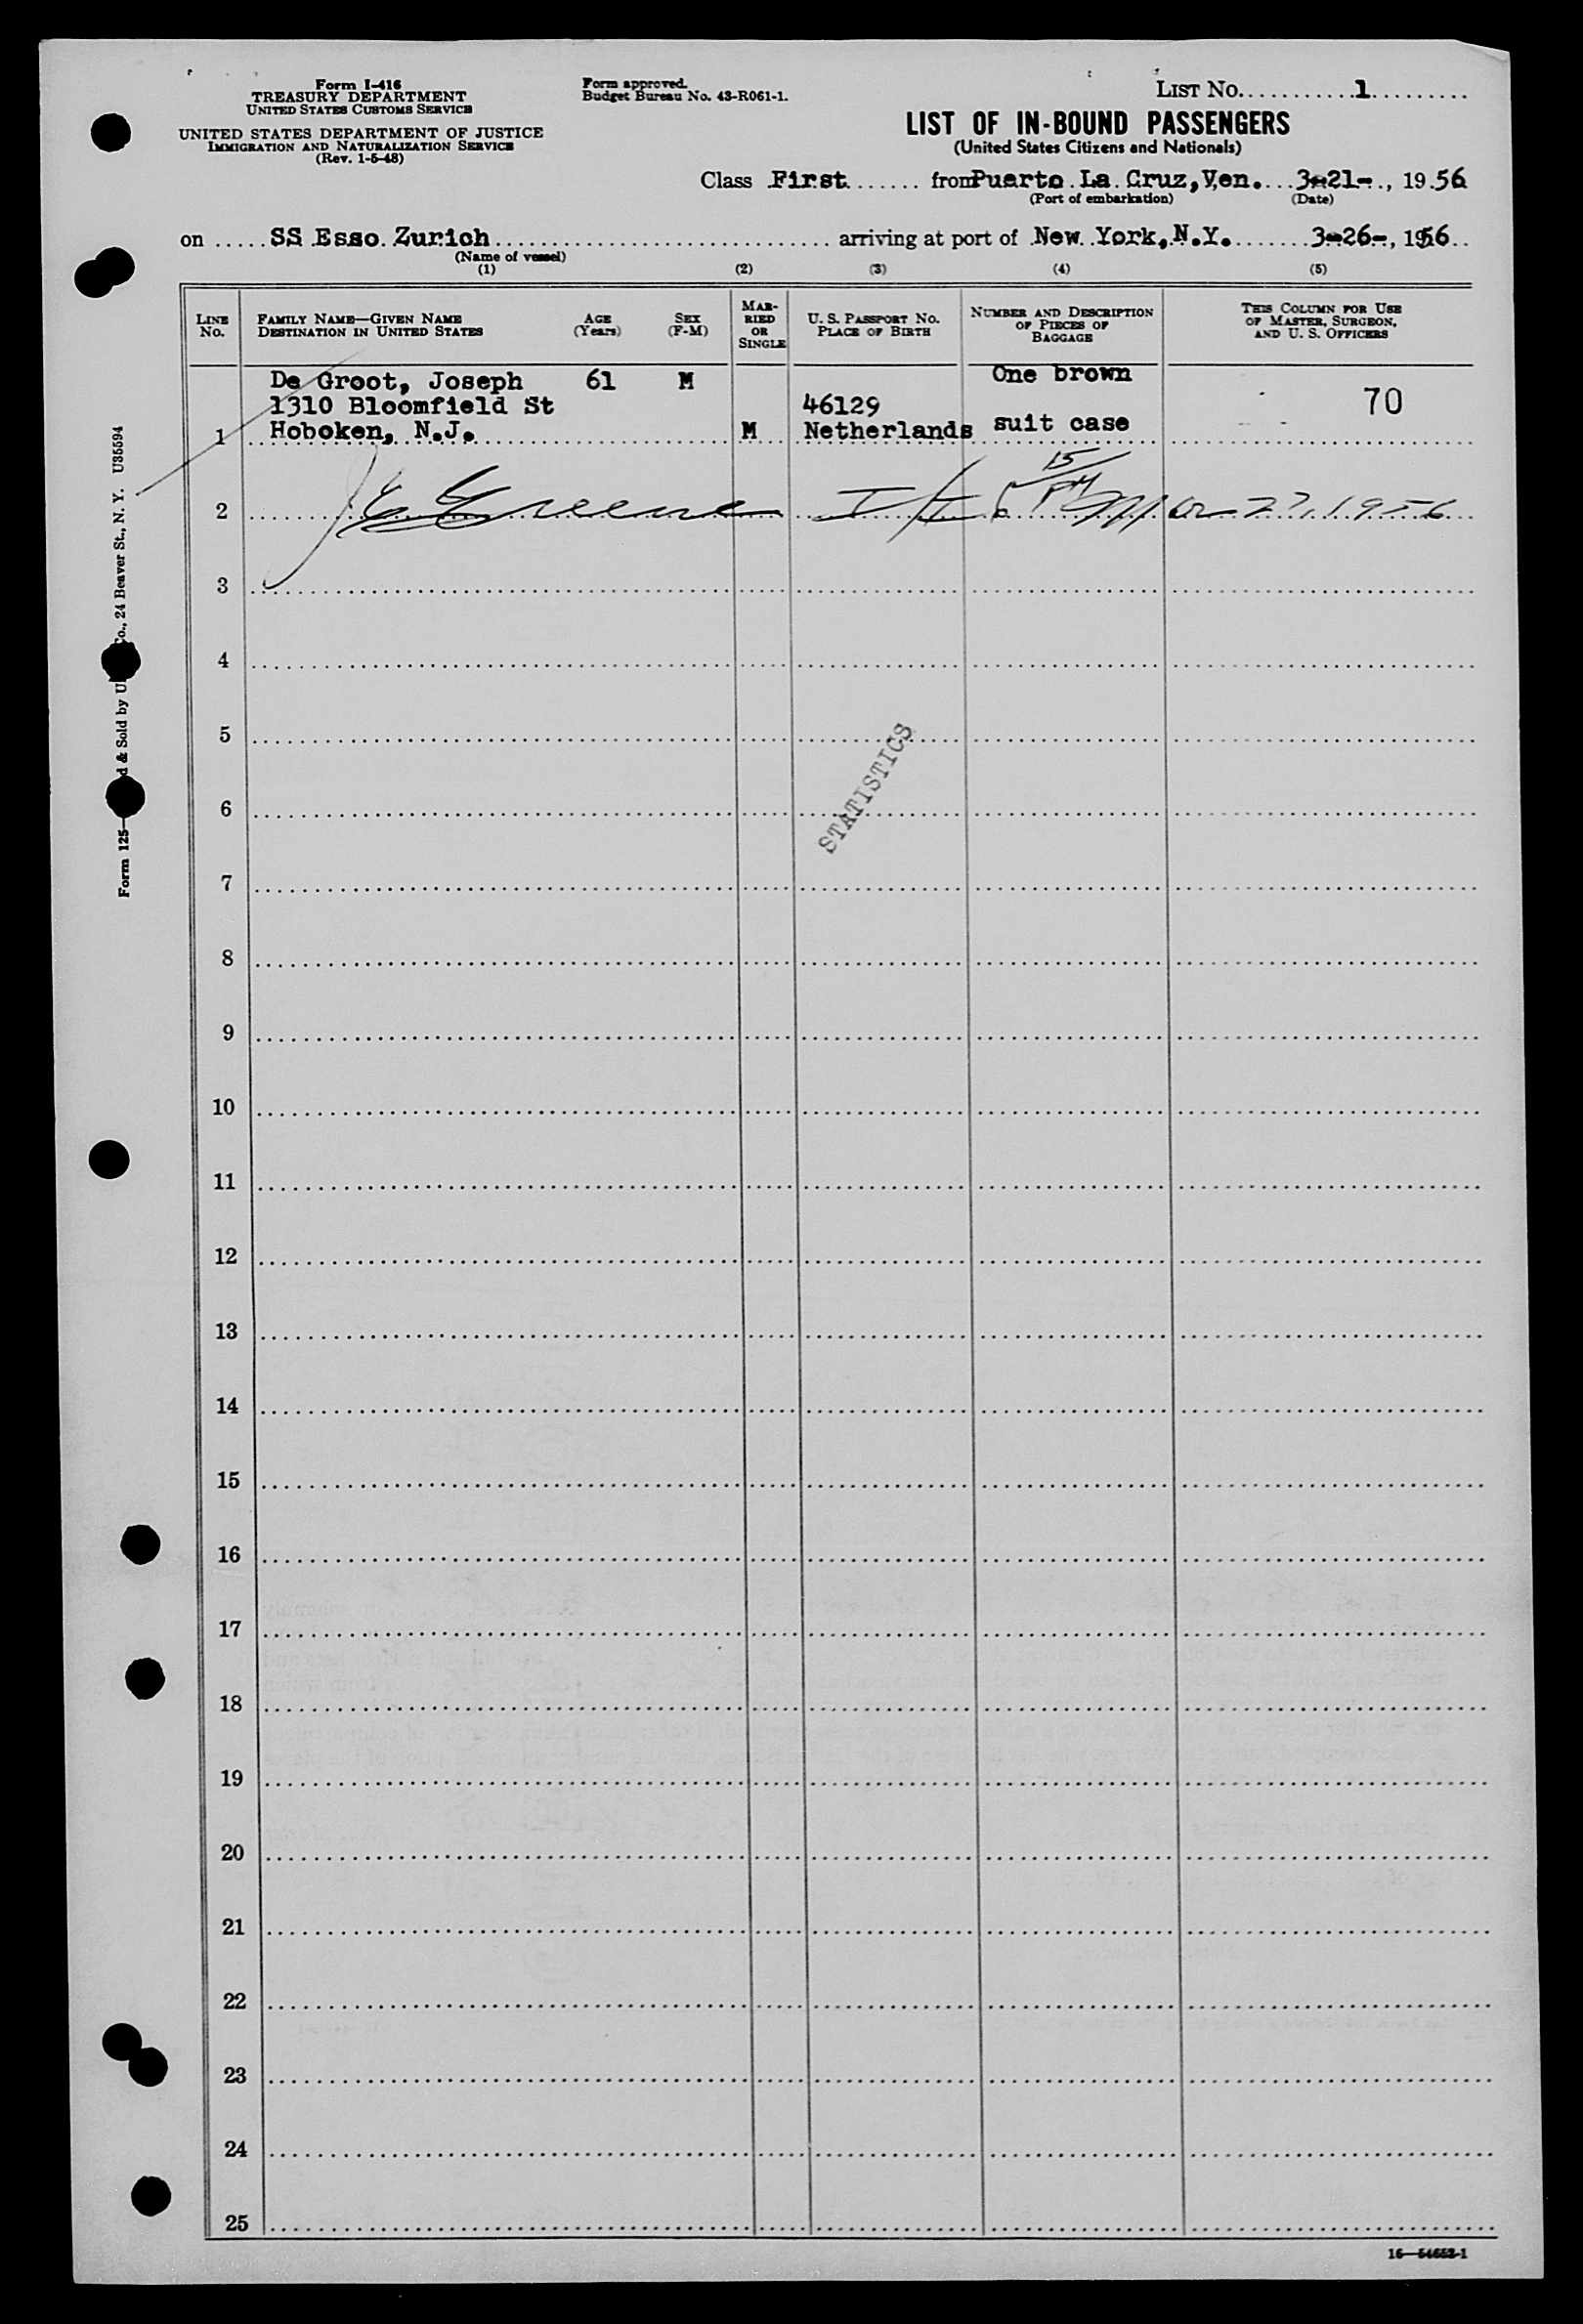 Form I-416
TREASURY DEPARTMENT
UNITED STATES CUSTOMS SERVICE
UNITED STATES DEPARTMENT OF JUSTICE
IMMIGRATION AND NATURALIZATION SERVICE
(Rev. 1-5-48)
Form approved.
Budget Bureau No. 43-R061-1.
LIST NO. 1
LIST OF IN-BOUND PASSENGERS
(United States Citizens and Nationals)
Class First from Puerto La Cruz, Ven. 3-21-, 1956
(Port of embarkation) (Date)
on SS Esso Zurich arriving at port of New York, N.Y. 3-26-, 1956
(Name of vessel)
(1) (2) (3) (4) (5)
LINE No.
FAMILY NAME—GIVEN NAME
DESTINATION IN UNITED STATES
AGE (Years)
SEX (F-M)
MARRIED OR SINGLE
U. S. PASSPORT NO.
PLACE OF BIRTH
NUMBER AND DESCRIPTION OF PIECES OF BAGGAGE
THIS COLUMN FOR USE OF MASTER, SURGEON, AND U. S. OFFICERS
De Groot, Joseph 61 M One brown
1310 Bloomfield St 46129 70
1 Hoboken, N.J. M Netherlands suit case
15
2 Greene PM Mar 27, 1956
3
4
5
STATISTICS
6
7
8
9
10
11
12
13
14
15
16
17
18
19
20
21
22
23
24
25
16—54652-1
Form 125— d & Sold by U Co., 24 Beaver St., N. Y. U35594